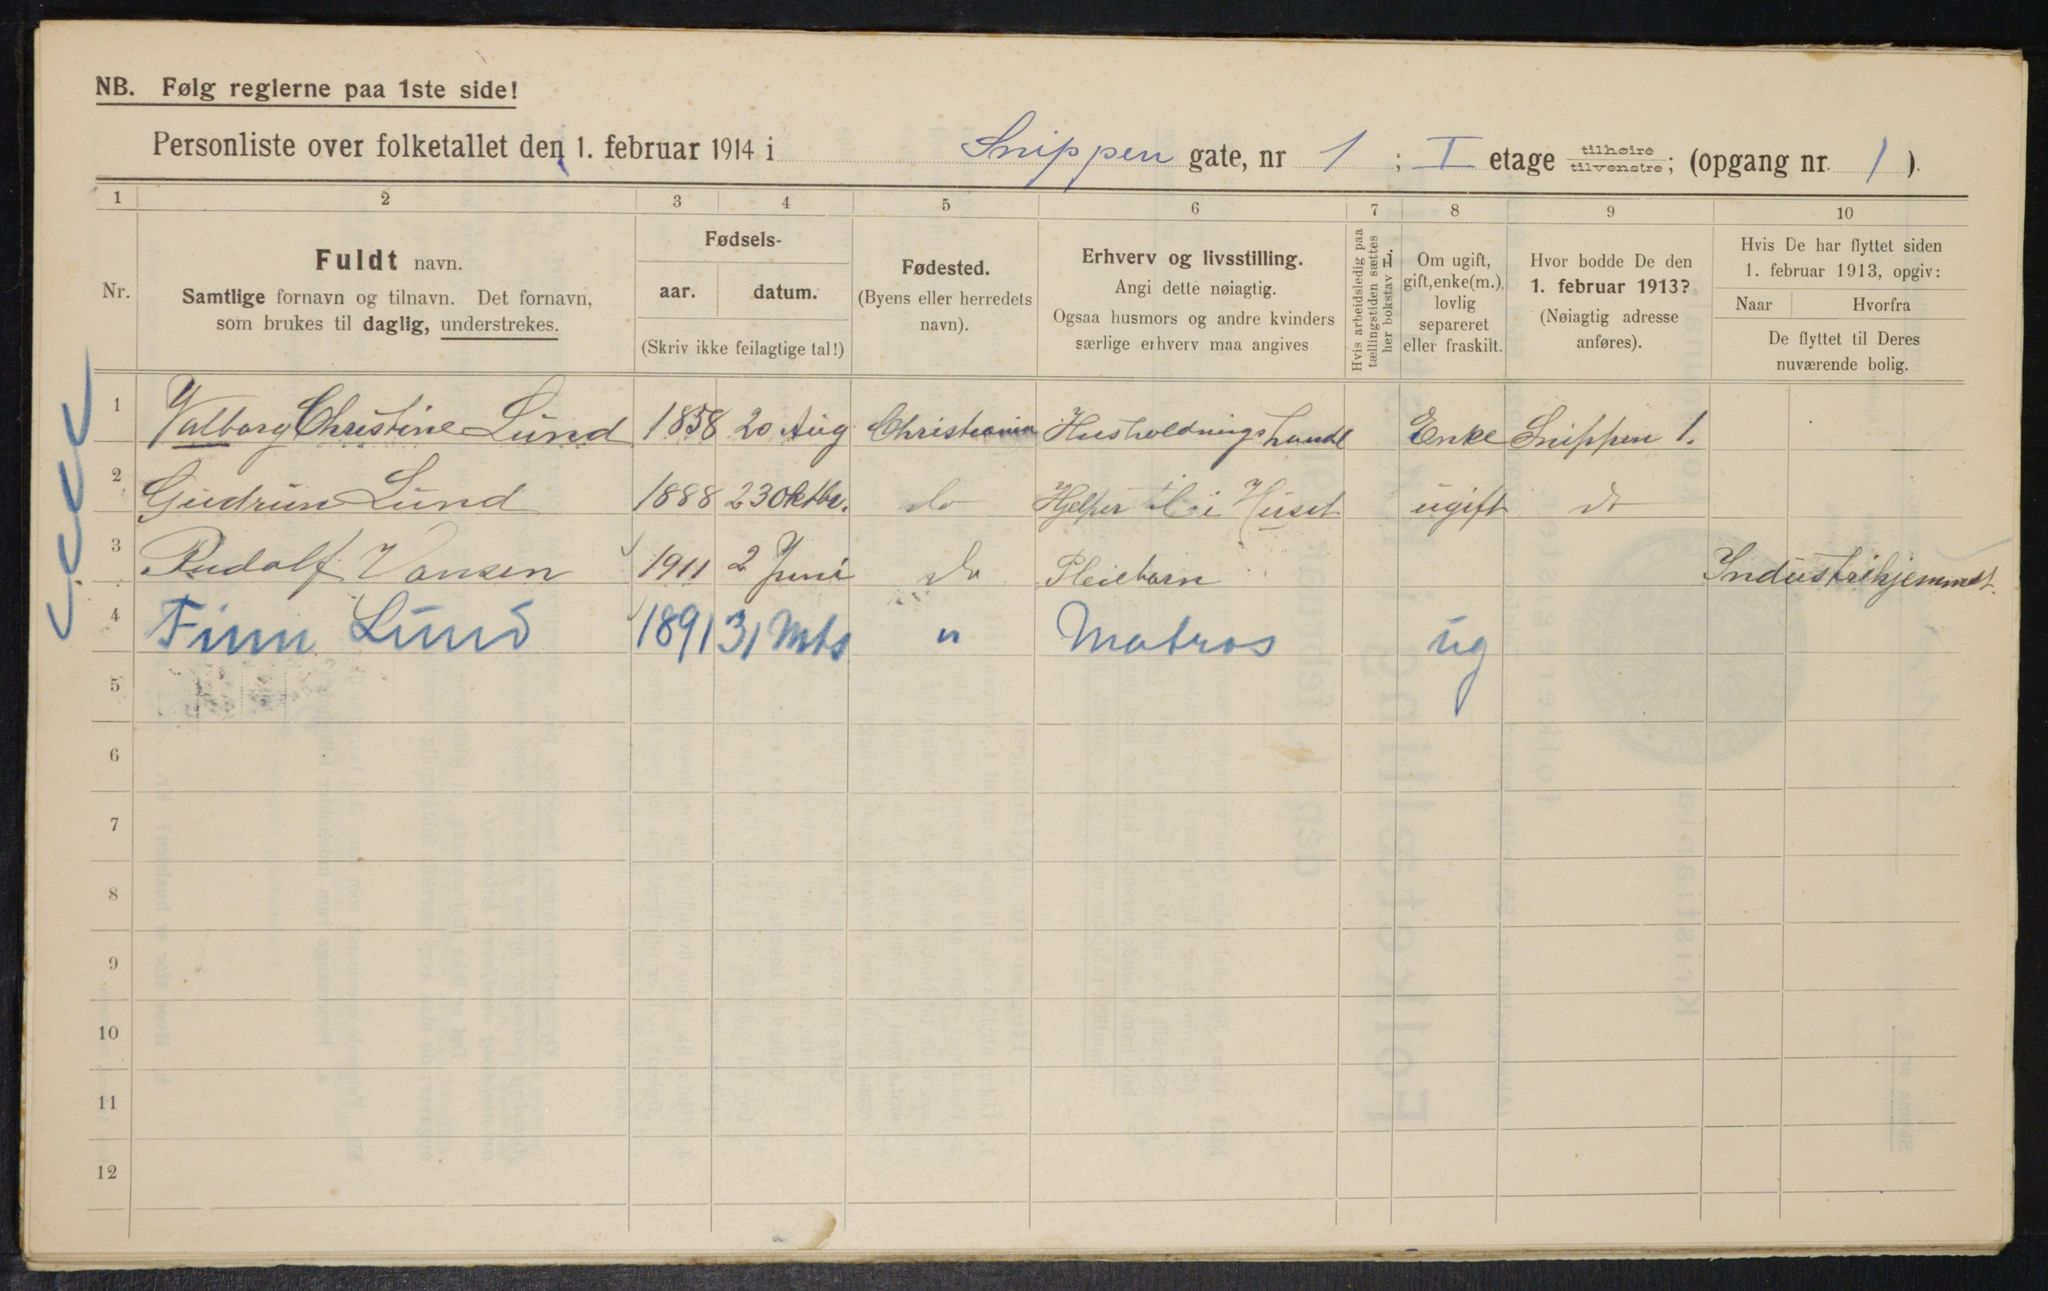 NB. Følg reglerne paa 1ste side!
Personliste over folketallet den 1. februar 1914 i Snippen gate, nr 1 ; I etage tilhøire tilvenstre; (opgang nr. 1 ).
1 2 3 4 5 6 7 8 9 10
Nr.
Fuldt navn.
Samtlige fornavn og tilnavn. Det fornavn,
som brukes til daglig, understrekes.
Fødsels-
aar. datum.
(Skriv ikke feilagtige tal!)
Fødested.
(Byens eller herredets
navn).
Erhverv og livsstilling.
Angi dette nøiagtig.
Ogsaa husmors og andre kvinders
særlige erhverv maa angives
Hvis arbeidsledig paa
tællingstiden sættes
her bokstav L.
Om ugift,
gift, enke(m.).
lovlig
separeret
eller fraskilt.
Hvor bodde De den
1. februar 1913?
(Nøiagtig adresse
anføres).
Hvis De har flyttet siden
1. februar 1913, opgiv:
Naar Hvorfra
De flyttet til Deres
nuværende bolig.
1 Valborg Christine Lund 1858 20 Aug Christiania Husholdningshandl Enke Snippen 1.
2 Gudrun Lund 1888 23 Oktbr. do Hjelper til i Huset ugift do
3 Rudolf Hansen 1911 2 Juni do Pleiebarn Industrihjemmet.
4 Finn Lund 1891 31 Mts " Matros ug
5
6
7
8
9
10
11
12